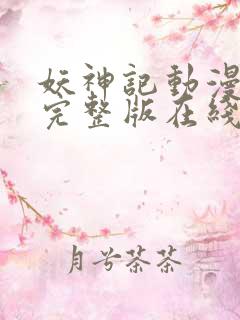 妖神記動漫
完整版在綫
月兮茶茶